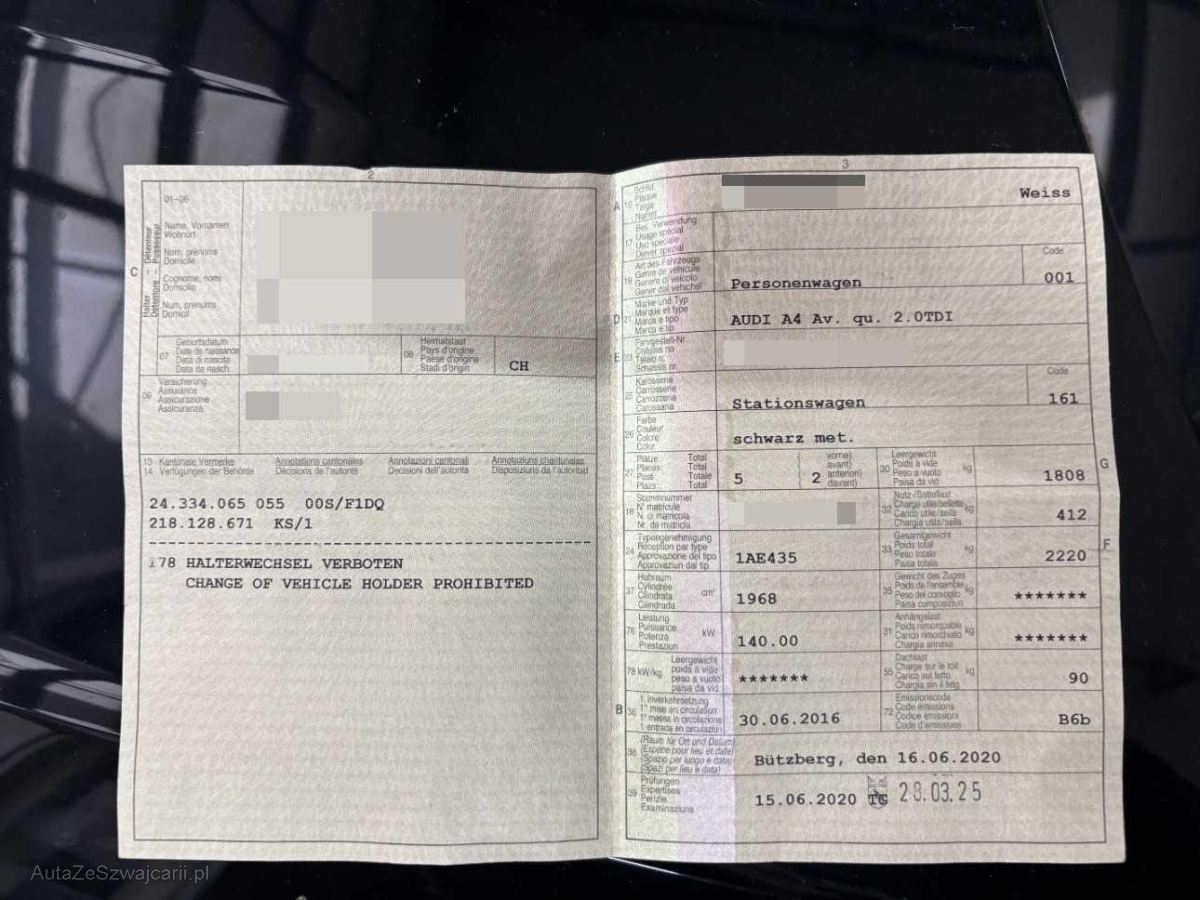 2
01-06
C
Halter - Détenteur
Detentore - Possessur
Name, Vornamen
Wohnort
Nom, prénoms
Domicile
Cognome, nomi
Domicilio
Num, prenums
Domicil
07
Geburtsdatum
Date de naissance
Data di nascita
Data da nasch.
08
Heimatstaat
Pays d'origine
Paese d'origine
Stadi d'origin
CH
09
Versicherung
Assurance
Assicurazione
Assicuranza
13 Kantonale Vermerke
14 Verfügungen der Behörde
Annotations cantonales
Décisions de l'autorité
Annotazioni cantonali
Decisioni dell'autorità
Annotaziuns chantunalas
Disposiziuns da l'autoritad
24.334.065 055 00S/F1DQ
218.128.671 KS/1
178 HALTERWECHSEL VERBOTEN
CHANGE OF VEHICLE HOLDER PROHIBITED
3
A
Schild
Plaque
Targa
Weiss
17
Bes. Verwendung
Usage spécial
Uso speciale
Diever spezial
19
Art des Fahrzeugs
Genre de véhicule
Genere di veicolo
Gener dal vehichel
Personenwagen
Code
001
D
21
Marke und Typ
Marque et type
Marca e tipo
Marca e tip
AUDI A4 Av. qu. 2.0TDI
E
23
Fahrgestell-Nr.
Châssis no
Telaio n.
Schassis nr.
25
Karosserie
Carrosserie
Carrozzeria
Carossaria
Stationswagen
Code
161
26
Farbe
Couleur
Colore
Colur
schwarz met.
27
Plätze: Total
Places: Total
Posti: Totale
Plazs: Total
5
vorne)
avant)
anteriori)
davant)
2
30
Leergewicht
Poids à vide
Peso a vuoto
Paisa da vid
kg
1808
G
18
Stammnummer
N° matricule
N. di matricola
Nr. da matricla
32
Nutz-/Sattellast
Charge utile/sellette
Carico utile/sella
Chargia utila/sella
kg
412
24
Typengenehmigung
Réception par type
Approvazione del tipo
Approvaziun dal tip
1AE435
33
Gesamtgewicht
Poids total
Peso totale
Paisa totala
kg
2220
F
37
Hubraum
Cylindrée
Cilindrata
Cilindrada
cm³
1968
35
Gewicht des Zuges
Poids de l'ensemble
Peso del convoglio
Paisa cumposiziun
kg
*******
76
Leistung
Puissance
Potenza
Prestaziun
kW
140.00
31
Anhängelast
Poids remorquable
Carico rimorchiato
Chargia annexa
kg
*******
78 kW/kg
Leergewicht
poids à vide
peso a vuoto
paisa da vid
*******
55
Dachlast
Charge sur le toit
Carico sul tetto
Chargia sin il tetg
kg
90
B
36
1. Inverkehrsetzung
1re mise en circulation
1a messa in circolazione
1. entrada en circulaziun
30.06.2016
72
Emissionscode
Code émissions
Codice emissioni
Code d'emissiuns
B6b
38
(Raum für Ort und Datum)
(Espace pour lieu et date)
(Spazio per luogo e data)
(Spazi per lieu e data)
Bützberg, den 16.06.2020
39
Prüfungen
Expertises
Perizie
Examinaziuns
15.06.2020 TG
28.03.25
AutaZeSzwajcarii.pl